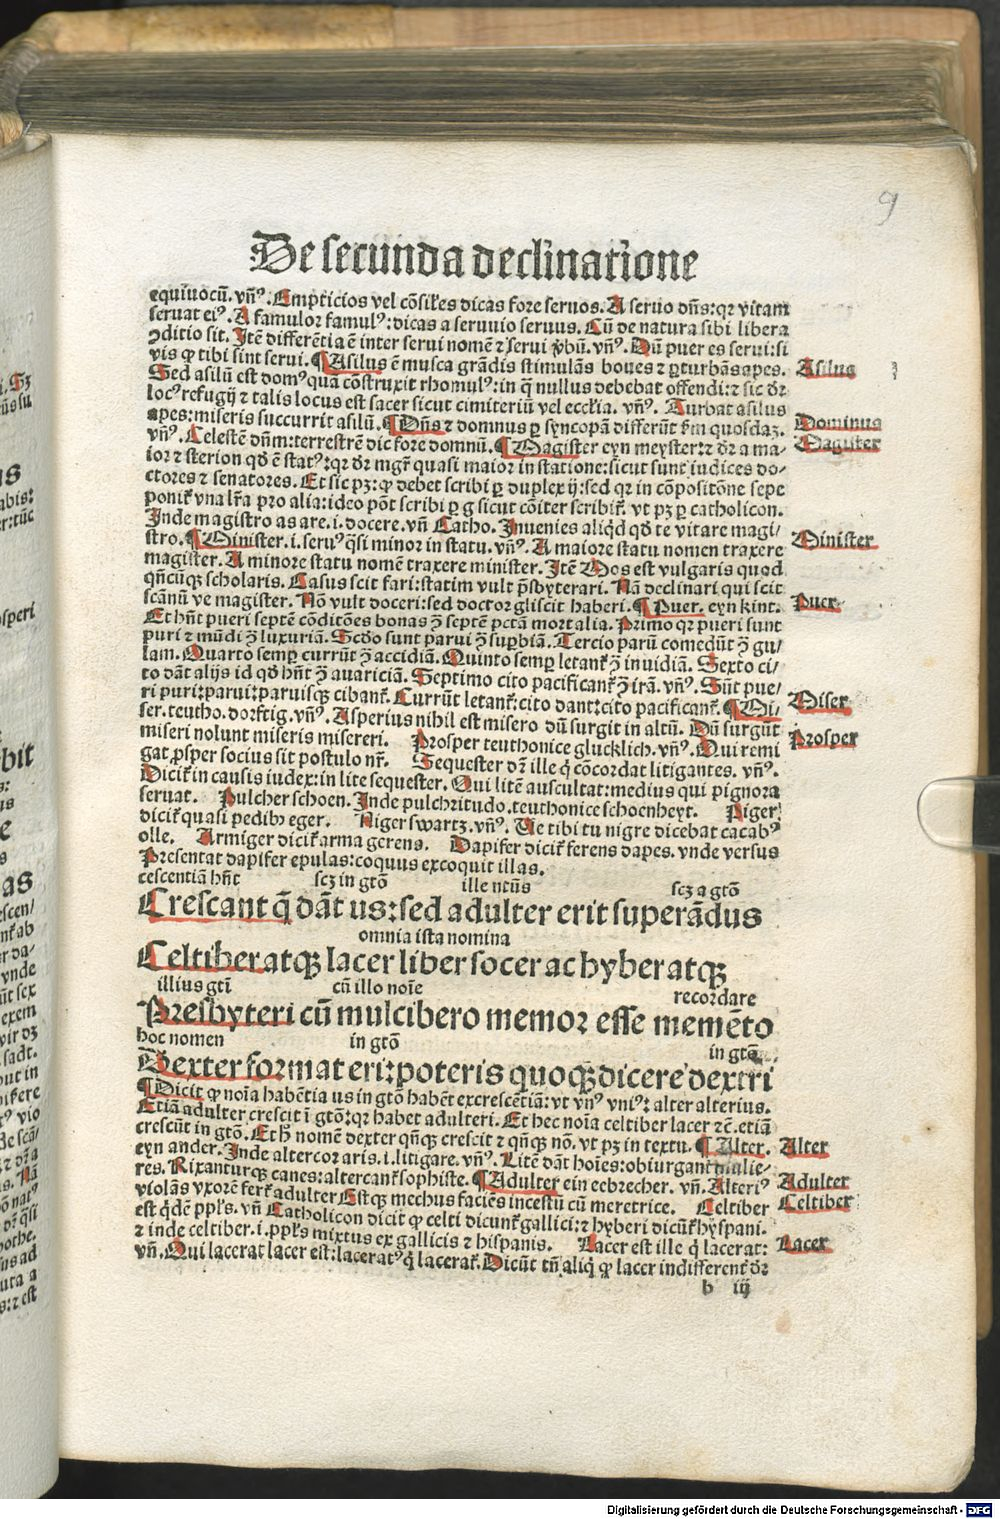 9
De secunda declinatione
equiuocū. vn̄ꝰ. Empticios vel cōsiles dicas fore seruos. A seruo dn̄s: qꝛ vitam
seruat eiꝰ. A famuloꝛ famulꝰ: dicas a seruuio seruus. Cū de natura sibi libera
ↄditio sit. Itē differētia ē inter serui nomē ⁊ serui v̓bū. vn̄ꝰ. Dū puer es serui: si
vis ꝙ tibi sint serui. ¶ Asilus ē musca grādis stimulās boues ⁊ ꝑturbās apes.
Sed asilū est domꝰ quā cōstruxit rhomulꝰ: in q̄ nullus debebat offendi: ⁊ sic dr̄
locꝰ refugij ⁊ talis locus est sacer sicut cimiteriū vel eccl̄ia. vn̄ꝰ. Turbat asilus
apes: miseris succurrit asilū. ¶ Dn̄s ⁊ domnus ꝑ syncopā differūt ẜm quosdaꝫ.
vn̄ꝰ. Celestē dn̄m: terrestrē dic fore domnū. ¶ Magister eyn meyster: ⁊ dr̄ a ma/
ioꝛ ⁊ sterion qd̄ ē statꝰ: qꝛ dr̄ mgr̄ quasi maior in statione: sicut sunt iudices do/
ctores ⁊ senatores. Et sic pꝫ: ꝙ debet scribi ꝑ duplex ij: sed qꝛ in cōpositōne sepe
ponit̄ vna lr̄a pro alia: ideo pōt scribi ꝑ g sicut cōiter scribit̄. vt pꝫ ꝑ catholicon.
Inde magistro as are. i. docere. vn̄ Catho. Inuenies aliqd̄ qd̄ te vitare magi/
stro. ¶ Minister. i. seruꝰ q̄si minor in statu. vn̄ꝰ. A maiore statu nomen traxere
magister. A minore statu nomē traxere minister. Itē Mos est vulgaris quod
qn̄cūqꝫ scholaris. Casus scit fari: statim vult p̄sbyterari. Nā declinari qui scit
scānū ve magister. Nō vult doceri: sed doctor gliscit haberi. ¶ Puer. eyn kint.
Et hn̄t pueri septē cōditōes bonas ꝯ̄ septē pctā mortalia. Primo qꝛ pueri sunt
puri ⁊ mūdi ꝯ̄ luxuriā. Scd̄o sunt parui ꝯ̄ suꝑbiā. Tercio parū comedūt ꝯ̄ gu/
lam. Quarto semꝑ currūt ꝯ̄ accidiā. Quinto semꝑ letant̄ ꝯ̄ inuidiā. Sexto ci/
to dāt alijs id qd̄ hn̄t ꝯ̄ auariciā. Septimo cito pacificant̄ ꝯ̄ irā. vn̄ꝰ. Sūt pue/
ri puri: parui: paruisqꝫ cibant̄. Currūt letant̄: cito dant: cito pacificant̄. ¶ Mi/
ser. teutho. dorftig. vn̄ꝰ. Asperius nihil est misero dū surgit in altū. Dū surgūt
miseri nolunt miseris misereri. Prosper teuthonice glucklich. vn̄ꝰ. Qui remi
gat ꝓsper socius sit postulo nr̄. Sequester dr̄ ille q̄ cōcordat litigantes. vn̄ꝰ.
Dicit̄ in causis iudex: in lite sequester. Qui litē auscultat: medius qui pignora
seruat. Pulcher schoen. Inde pulchritudo. teuthonice schoenheyt. Piger
dicit̄ quasi pedibꝫ eger. Niger swartz. vn̄ꝰ. Ue tibi tu nigre dicebat cacabꝰ
olle. Armiger dicit̄ arma gerens. Dapifer dicit̄ ferens dapes. vnde versus
Presentat dapifer epulas: coquus excoquit illas.
cescentiā hn̄t scꝫ in gtō ille nt̄us scꝫ a gtō
Crescant q̄ dāt us: sed adulter erit superādus
omnia ista nomina
Celtiber atqꝫ lacer liber socer ac hyber atqꝫ
illius gtī cū illo noīe recordare
Presbyteri cū mulcibero memoꝛ esse memēto
hoc nomen in gtō in gtō
Dexter format eri: poteris quoqꝫ dicere dextri
¶ Dicit ꝙ noīa habētia us in gtō habēt excrescētiā: vt vnꝰ vniꝰ: alter alterius.
Etiā adulter crescit ī gtō: qꝛ habet adulteri. Et hec noīa celtiber lacer ⁊cē. etiā
crescūt in gtō. Et h̄ nomē dexter qn̄qꝫ crescit ⁊ qn̄qꝫ nō. vt pꝫ in textu. ¶ Alter.
eyn ander. Inde altercor aris. i. litigare. vn̄ꝰ. Litē dāt hoīes: obiurgant mulie/
res. Rixanturqꝫ canes: altercant̄ sophiste. ¶ Adulter ein eebrecher. vn̄. Alteriꝰ
violās vxorē fert̄ adulter Estqꝫ mechus faciēs incestū cū meretrice. Celtiber
est q̄dē ppl̄s. vn̄ Catholicon dicit ꝙ celti dicunt̄ gallici: ⁊ hyberi dicūt̄ hyspani.
⁊ inde celtiber. i. ppl̄s mixtus ex gallicis ⁊ hispanis. Lacer est ille q̄ lacerat:
vn̄. Qui lacerat lacer est: laceratꝰ q̄ lacerat̄. Dicūt tn̄ aliq̄ ꝙ lacer indifferent̄ dr̄
b iij
Asilus
Dominus
Magister
Minister
Puer
Miser
Prosper
Alter
Adulter
Celtiber
Lacer
Digitalisierung gefördert durch die Deutsche Forschungsgemeinschaft - DFG